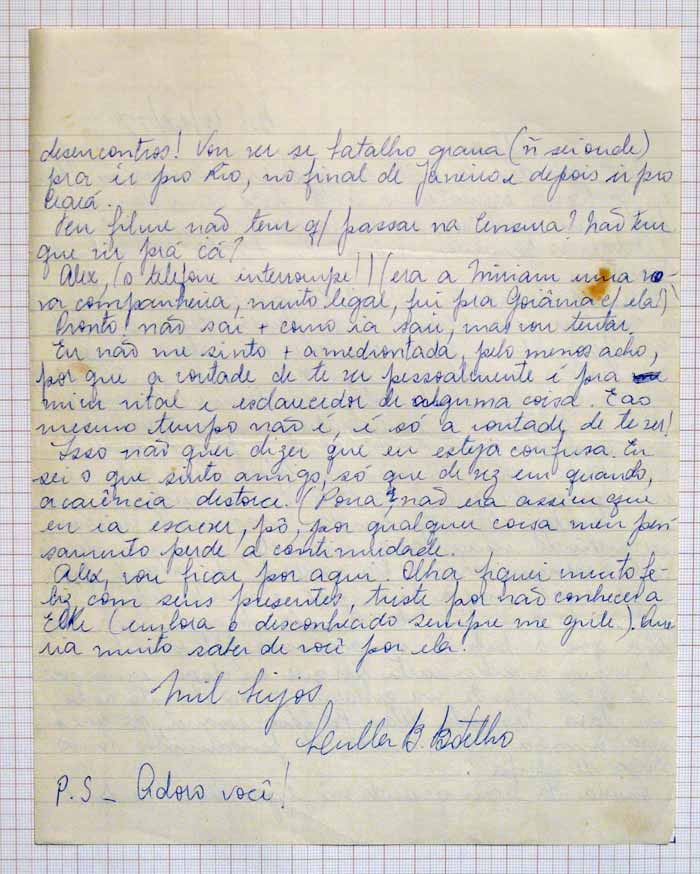 desencontros! Vou ver se batalho grana (ñ sei onde)
pra ir pro Rio, no final de Janeiro e depois ir pro
Ceará.
Teu filme não tem q/ passar na Censura? Não tem
que vir prá cá?
Alex, (o telefone interrompe!) (era a Miriam uma no-
va companheira, muito legal, fui pra Goiânia c/ ela!)
Pronto, não sai + como ia sair, mas vou tentar.
Eu não me sinto + amedrontada, pelo menos acho,
por que a vontade de te ver pessoalmente é pra
mim vital e esclarecedor de alguma coisa. E ao
mesmo tempo não é, é só a vontade de te ver!
Isso não quer dizer que eu esteja confusa. Eu
sei o que sinto amigo, só que de vez em quando,
a carência distorce. (Porra, não era assim que
eu ia escrever, pô, por qualquer coisa meu pen-
samento perde a continuidade.
Alex, vou ficar por aqui. Olha fiquei muito fe-
liz com seus presentes, triste por não conhecer a
Elke (embora o desconhecido sempre me grile). Que
ria muito saber de você por ela!
Mil beijos
B. Botelho
P.S - Adoro você!